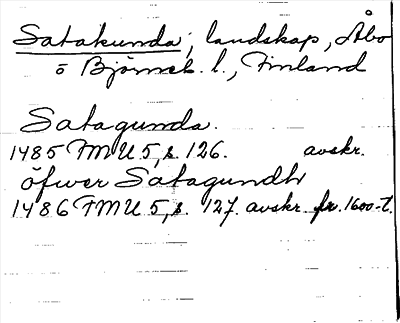 Satakunda, landskap, Åbo
o Björneb. l., Finland
Satagunda.
1485 FMU 5, s. 126. avskr.
öfwer Satagundh
1486 FMU 5, s. 127. avskr. fr. 1600-t.